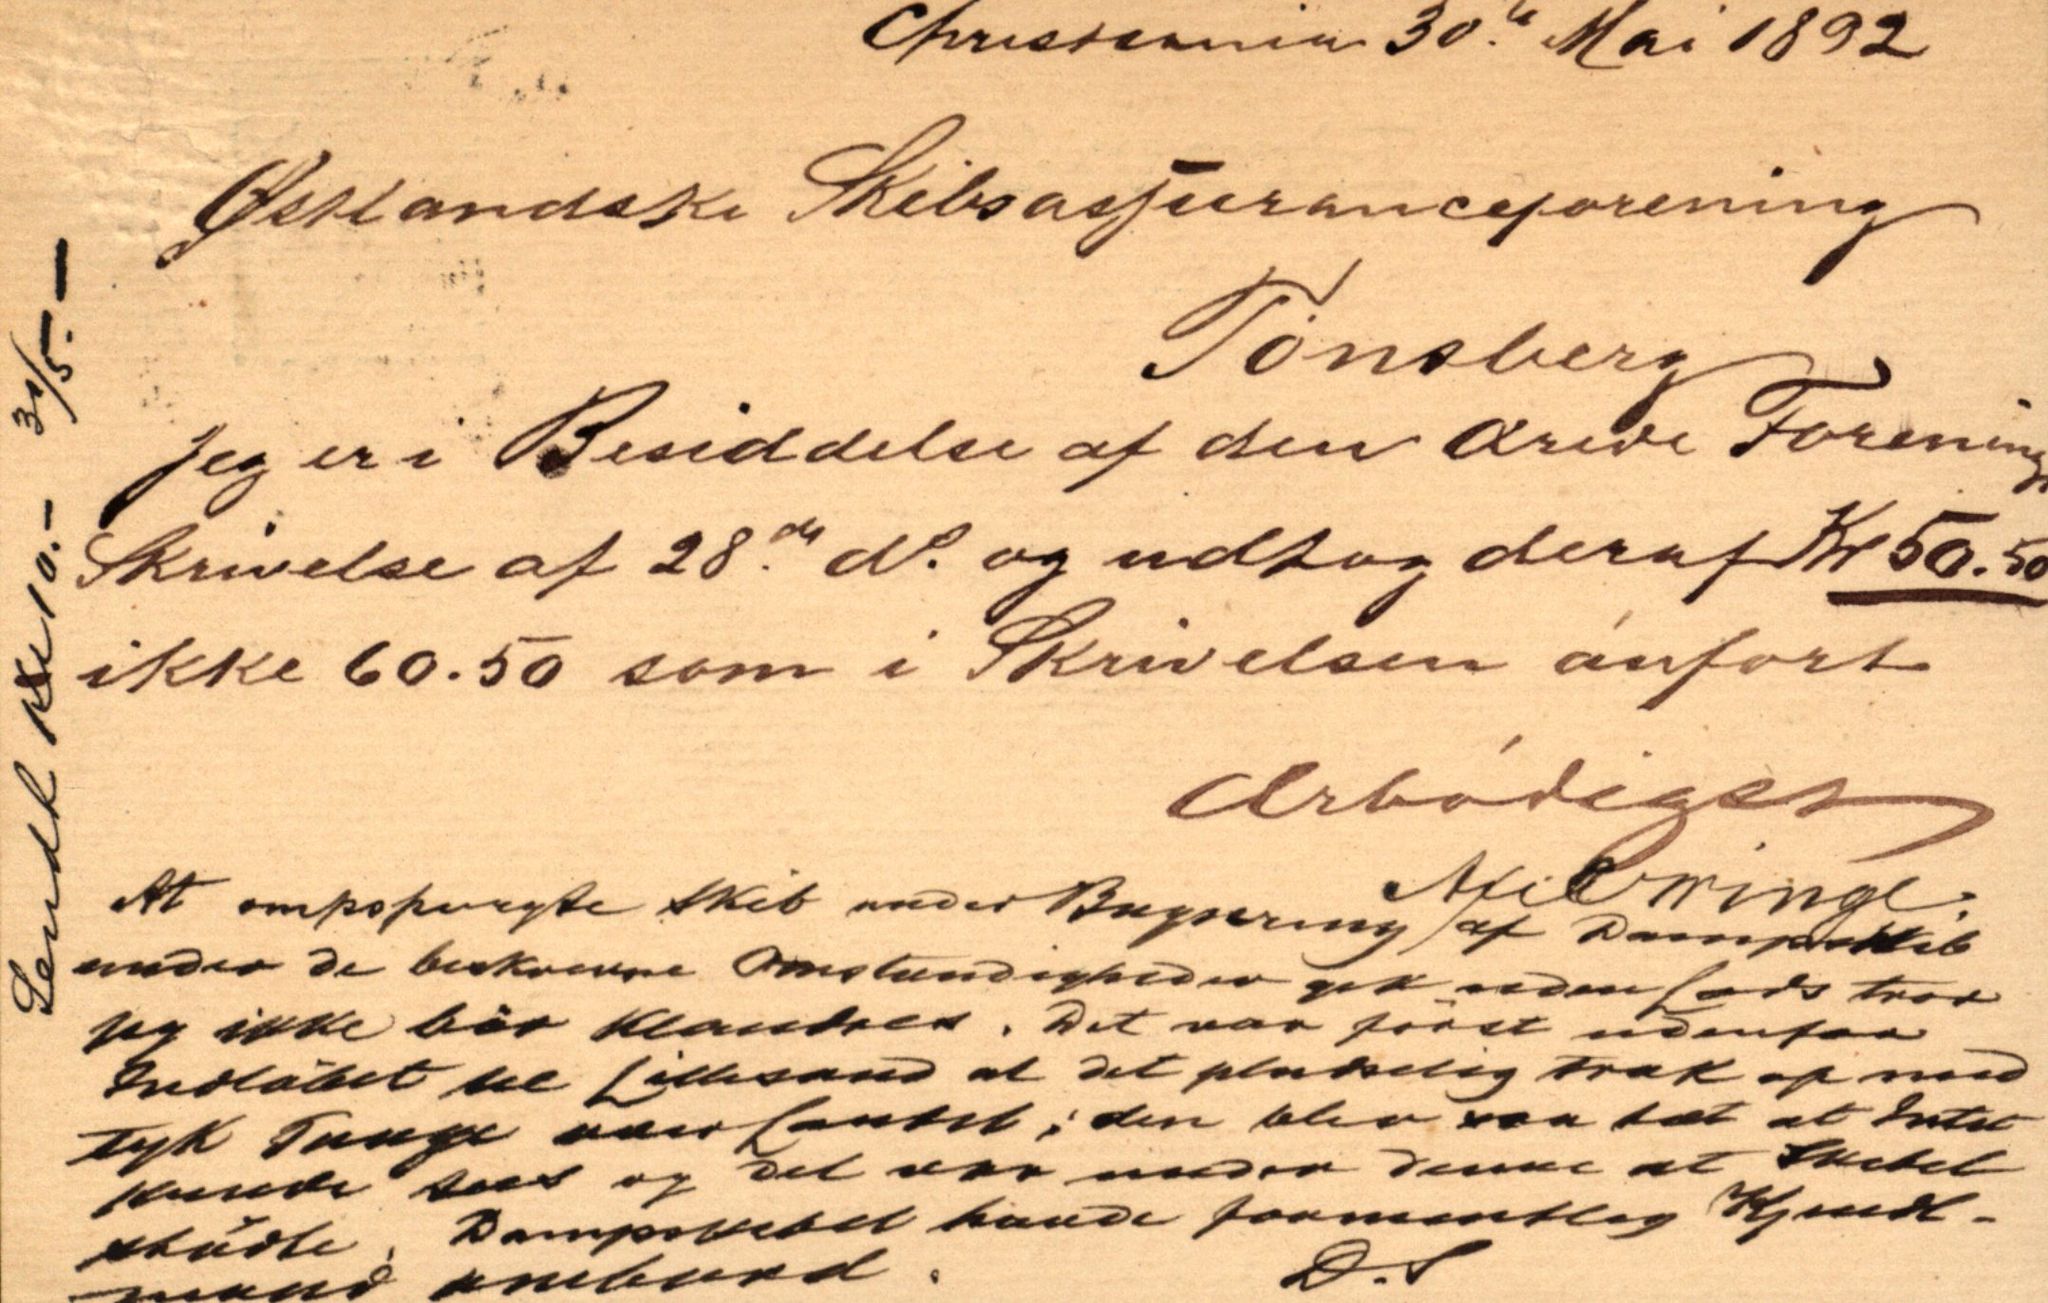 Christiania 30.te Mai 1892
Østlandske Skibsassuranceforening
Tönsberg
Jeg er i Besiddelse af den ærede Forenings
Skrivelse af 28.de ds. og udtog deraf Kr 50.50
ikke 60.50 som i Skrivelsen anfört
Ærbödigst
Winge.
At ompspurgte Skib under Bugsering af Dampskib
under de beskrevne Omstændigheder gik uden Lods tror
jeg ikke bör klandres. Det var först udenfor
Indlöbet til Lillesand at det pludselig trak op med
tyk Taage over Landet; den blev saa tæt at Intet
kunde sees og det var under denne at Skibet
stödte. Dampskibet havde formentlig Kjendt-
mand ombord.
D.S
Sendt Kr 10.- 31/5.-